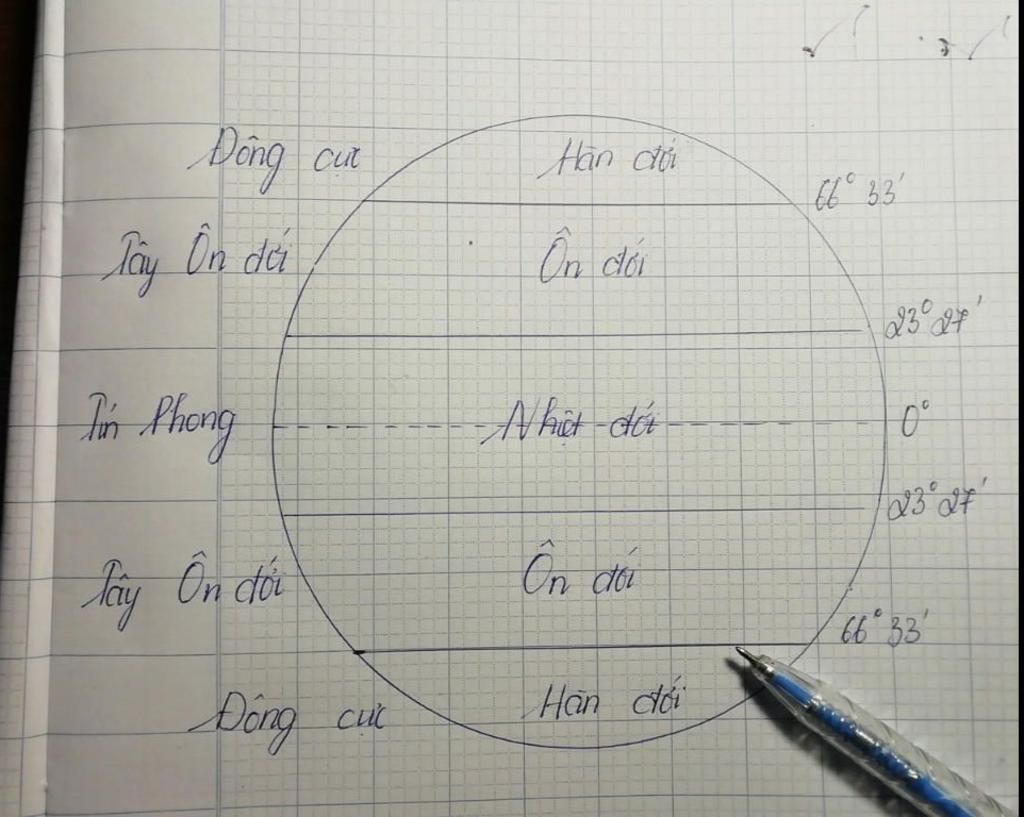 Đông cực Hàn đới
66° 33'
Tây Ôn đới Ôn đới
23° 27'
Tín Phong Nhiệt đới 0°
23° 27'
Tây Ôn đới Ôn đới
66° 33'
Đông cực Hàn đới